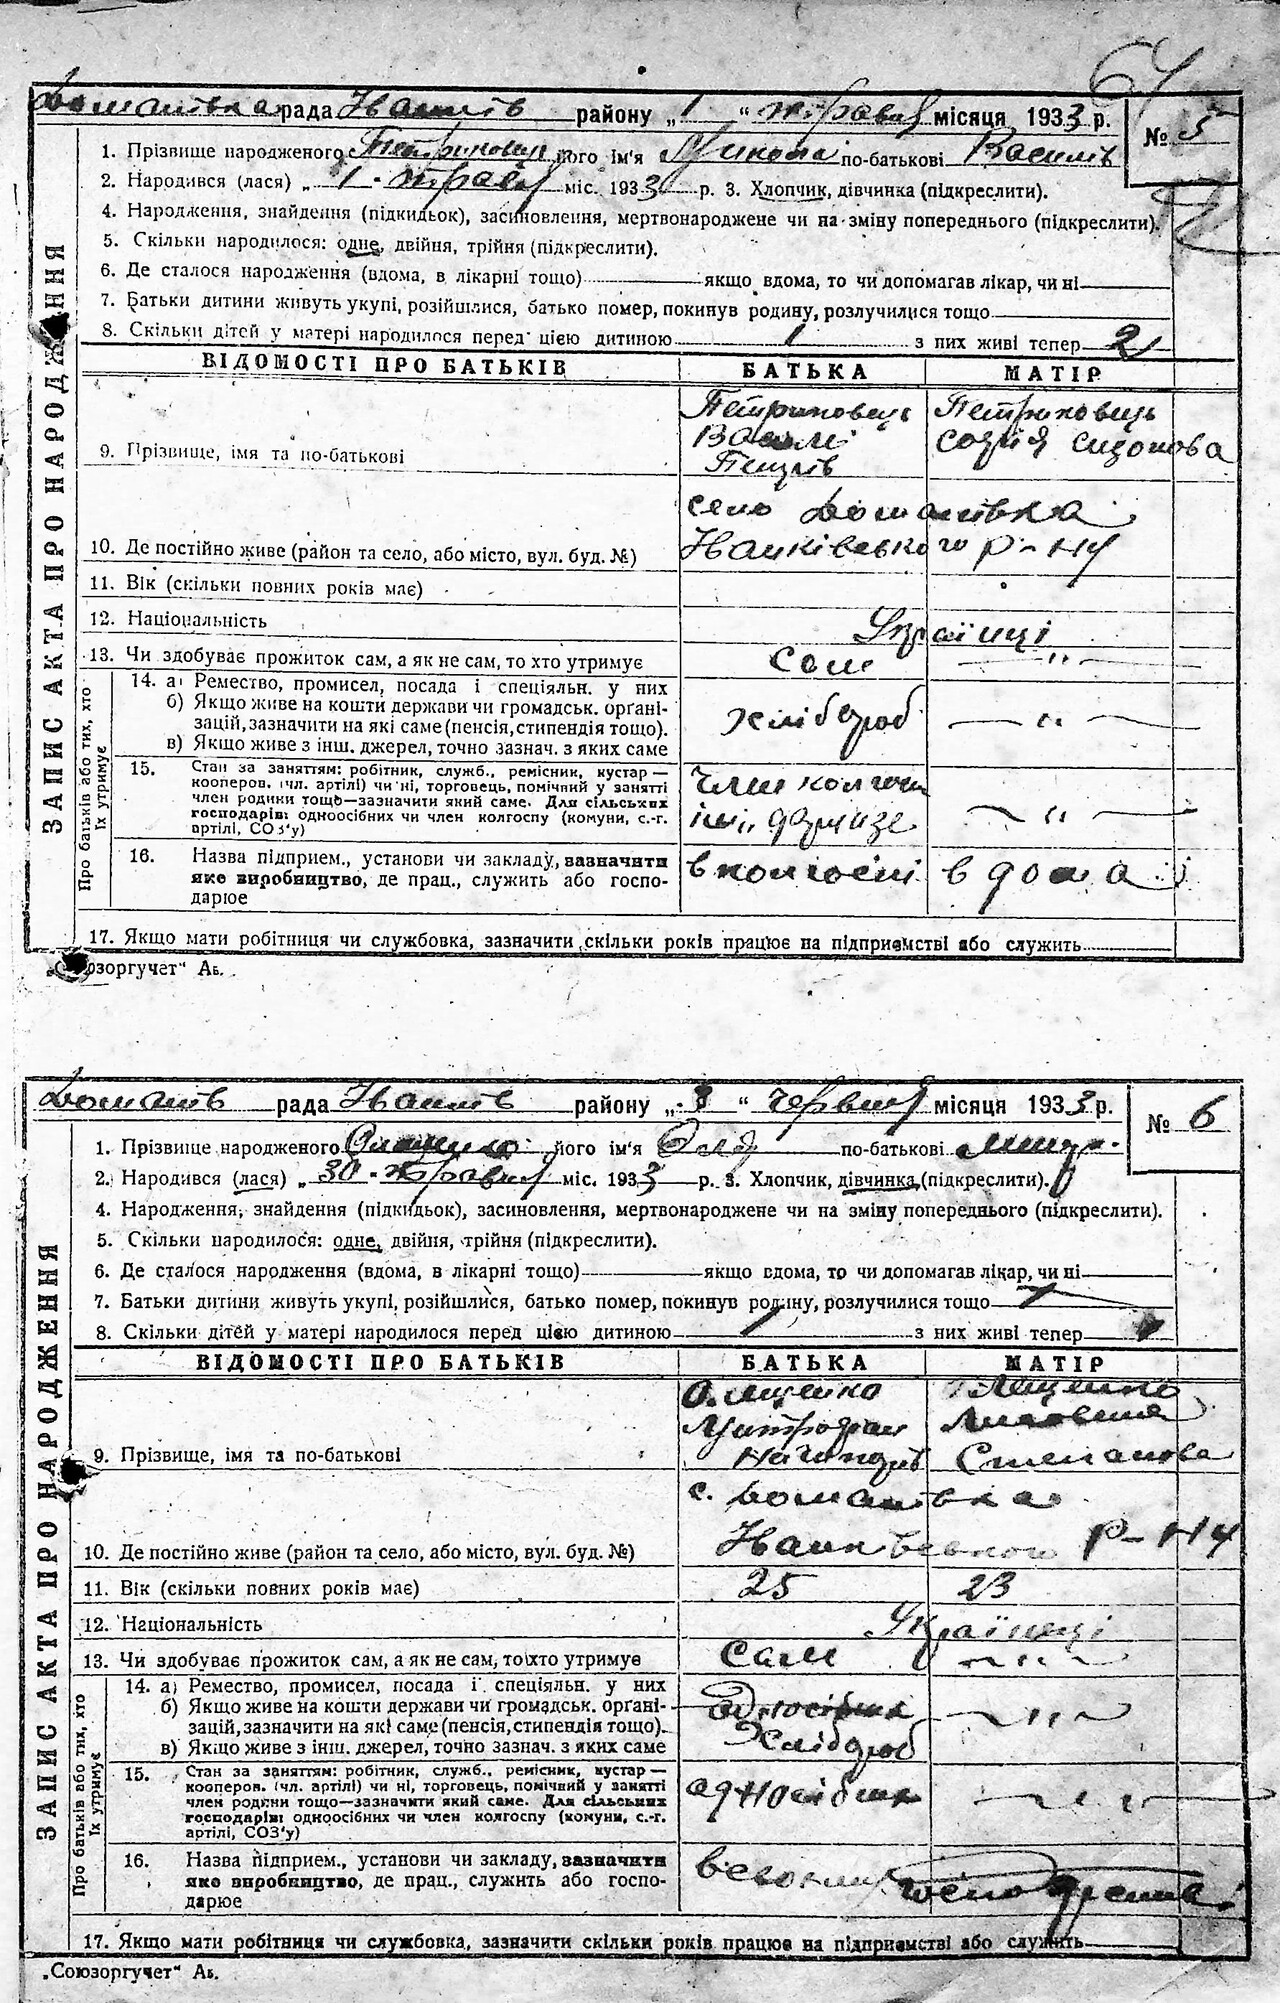 64
рада Іванків району „1“ травня місяця 1933 р.
№ 5
1. Прізвище народженого його ім'я Микола по-батькові Василів
2. Народився (лася) „1 травня міс. 1933 р. 3. Хлопчик, дівчинка (підкреслити).
4. Народження, знайдення (підкидьок), засиновлення, мертвонароджене чи на зміну попереднього (підкреслити).
5. Скільки народилося: одне, двійня, трійня (підкреслити).
6. Де сталося народження (вдома, в лікарні тощо) якщо вдома, то чи допомагав лікар, чи ні
7. Батьки дитини живуть укупі, розійшлися, батько помер, покинув родину, розлучилися тощо
8. Скільки дітей у матері народилося перед цією дитиною 1 з них живі тепер 2
ЗАПИС АКТА ПРО НАРОДЖЕННЯ
ВІДОМОСТІ ПРО БАТЬКІВ БАТЬКА МАТІР
Петриковець Петриковець
Софія
9. Прізвище, імя та по-батькові
село Доманівка
10. Де постійно живе (район та село, або місто, вул. буд. №) Іванківського р-ну
11. Вік (скільки повних років має)
12. Національність Українці
13. Чи здобуває прожиток сам, а як не сам, то хто утримує Сам — " —
Про батьків або тих, хто їх утримує
14. а) Ремество, промисел, посада і спеціяльн. у них
б) Якщо живе на кошти держави чи громадськ. орґані-
зацій, зазначити на які саме (пенсія, стипендія тощо). Хлібороб — " —
в) Якщо живе з інш. джерел, точно зазнач. з яких саме
15. Стан за заняттям: робітник, служб., ремісник, кустар —
кооперов. (чл. артілі) чи ні, торговець, помічний у занятті
член родини тощо—зазначити який саме. Для сільських
господарів: одноосібних чи член колгоспу (комуни, с.-г.
артілі, СОЗ'у)
член — " —
16. Назва підприєм., установи чи закладу, зазначити
яке виробництво, де прац., служить або госпо-
дарює
в колгоспі вдома
17. Якщо мати робітниця чи службовка, зазначити скільки років працює на підприємстві або служить
„Союзоргучет“ Ав.
рада Іванків району „3“ червня місяця 1933 р.
№ 6
1. Прізвище народженого його ім'я по-батькові
2. Народився (лася) „30 травня міс. 1933 р. 3. Хлопчик, дівчинка (підкреслити).
4. Народження, знайдення (підкидьок), засиновлення, мертвонароджене чи на зміну попереднього (підкреслити).
5. Скільки народилося: одне, двійня, трійня (підкреслити).
6. Де сталося народження (вдома, в лікарні тощо) якщо вдома, то чи допомагав лікар, чи ні
7. Батьки дитини живуть укупі, розійшлися, батько помер, покинув родину, розлучилися тощо
8. Скільки дітей у матері народилося перед цією дитиною 1 з них живі тепер
ЗАПИС АКТА ПРО НАРОДЖЕННЯ
ВІДОМОСТІ ПРО БАТЬКІВ БАТЬКА МАТІР
Митрофан
9. Прізвище, імя та по-батькові Степанова
с. Доманівка
10. Де постійно живе (район та село, або місто, вул. буд. №) Іванківського р-ну
11. Вік (скільки повних років має) 25 23
12. Національність Українці
13. Чи здобуває прожиток сам, а як не сам, то хто утримує Сам — " —
Про батьків або тих, хто їх утримує
14. а) Ремество, промисел, посада і спеціяльн. у них
б) Якщо живе на кошти держави чи громадськ. орґані- односібник
зацій, зазначити на які саме (пенсія, стипендія тощо). — " —
в) Якщо живе з інш. джерел, точно зазнач. з яких саме Хлібороб
15. Стан за заняттям: робітник, служб., ремісник, кустар —
кооперов. (чл. артілі) чи ні, торговець, помічний у занятті
член родини тощо—зазначити який саме. Для сільських
господарів: одноосібних чи член колгоспу (комуни, с.-г.
артілі, СОЗ'у)
односібник — " —
16. Назва підприєм., установи чи закладу, зазначити
яке виробництво, де прац., служить або госпо-
дарює
17. Якщо мати робітниця чи службовка, зазначити скільки років працює на підприємстві або служить
„Союзоргучет“ Ав.